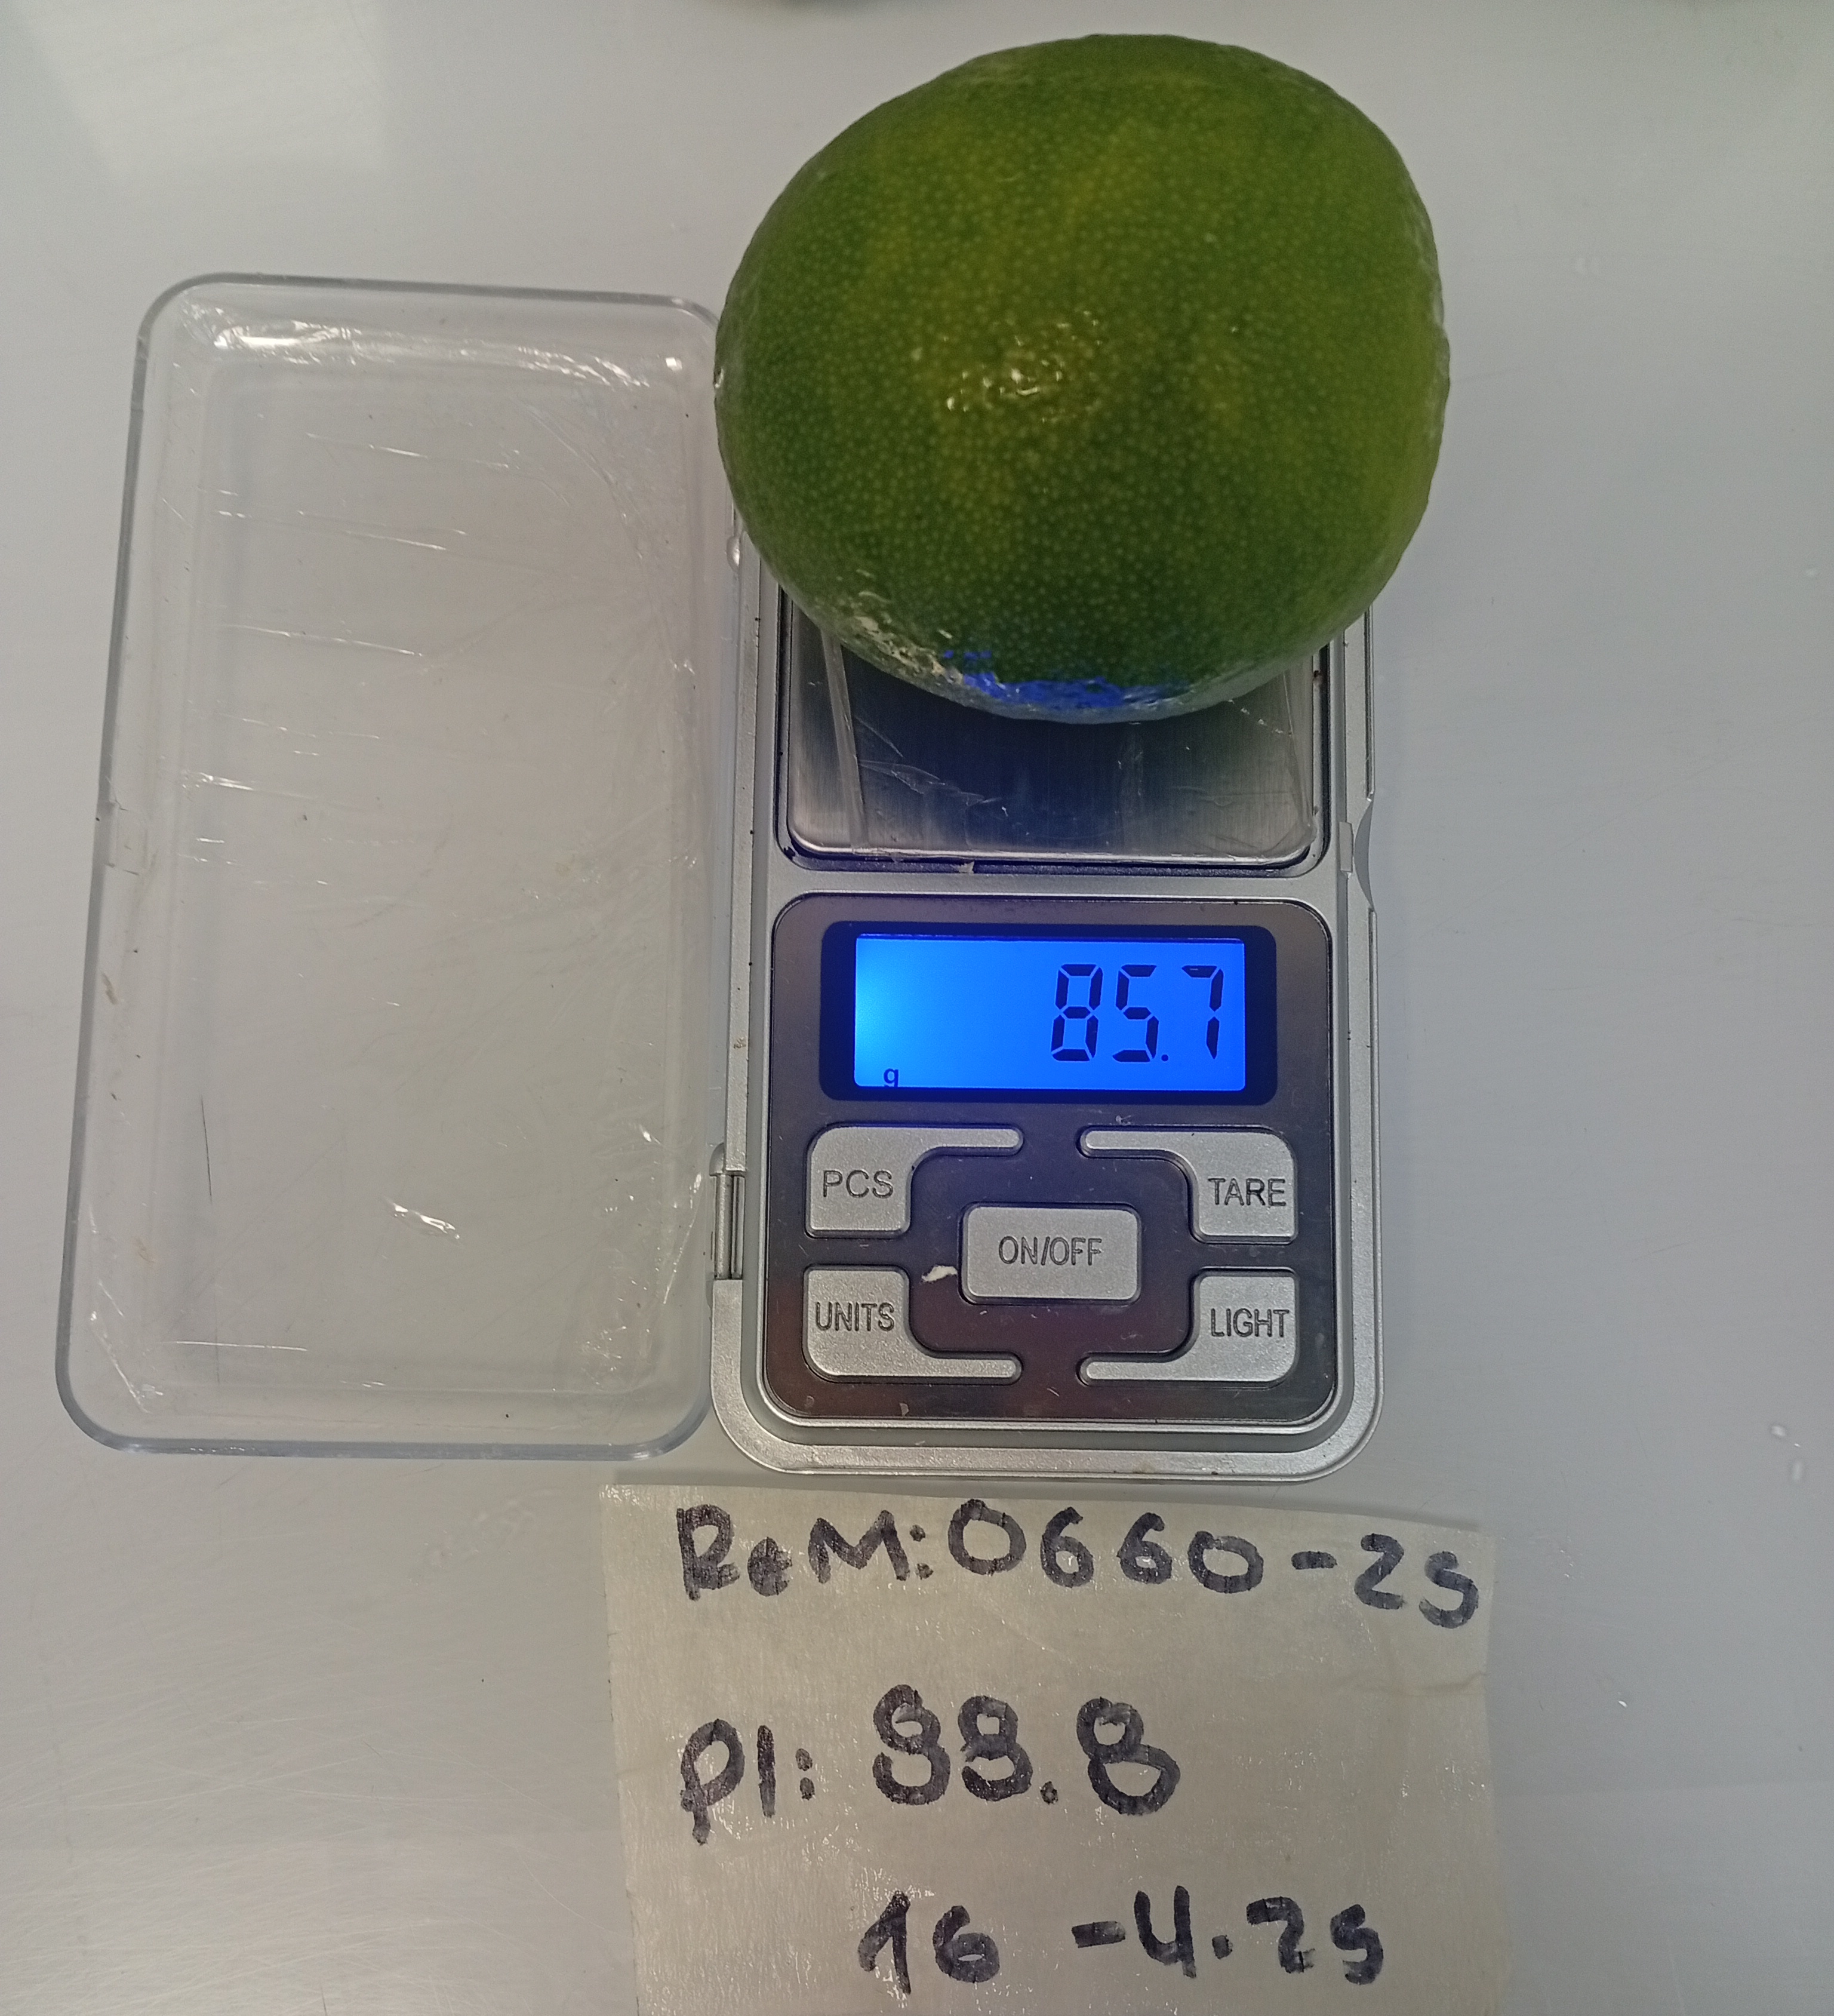 85.7
g
PCS
TARE
ON/OFF
UNITS
LIGHT
ReM:0660-25
PI: 88.8
16 -4.25